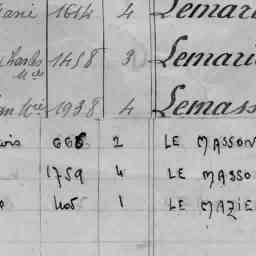 Marie 1614 4 Lemari
Charles 1458 3 Lemari
Mce
1938 4 Lemass
ois 666 2 LE MASSON
1759 4 LE MASSO
405 1 LE MAZIE